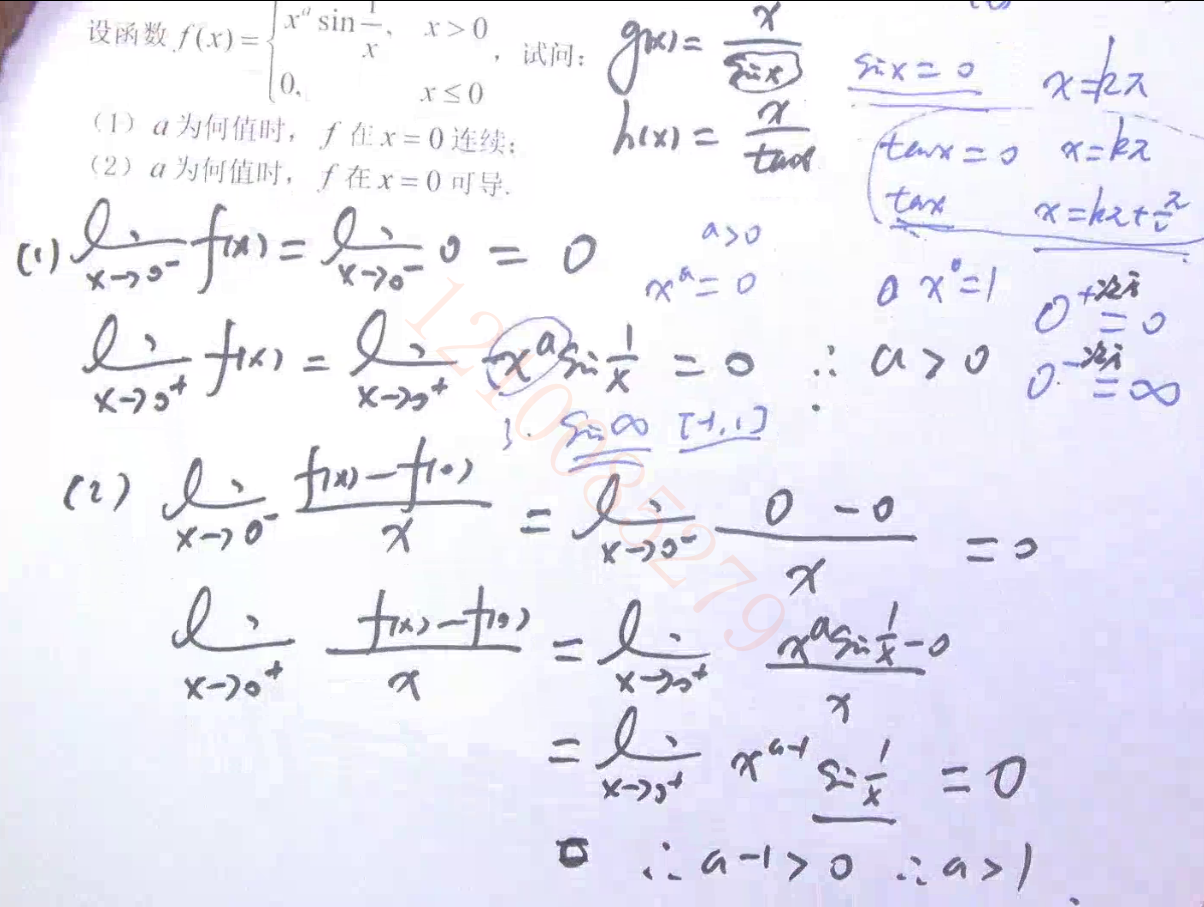 设函数 f(x)={x^a sin 1/x, x>0
0, x≤0 , 试问:
(1) a 为何值时, f 在 x=0 连续;
(2) a 为何值时, f 在 x=0 可导.
g(x)= x/sinx
h(x)= x/tanx
sinx=0 x=kπ
tanx=0 x=kπ
tanx x=kπ+π/2
(1) lim x→0⁻ f(x) = lim x→0⁻ 0 = 0
a>0
x^a=0
0 x^0=1
0^+ =0
0^- =∞
lim x→0⁺ f(x) = lim x→0⁺ x^a sin 1/x = 0 ∴ a>0
sin∞ [-1,1]
(2) lim x→0⁻ (f(x)-f(0))/x = lim x→0⁻ (0-0)/x =0
lim x→0⁺ (f(x)-f(0))/x = lim x→0⁺ (x^a sin 1/x -0)/x
= lim x→0⁺ x^(a-1) sin 1/x = 0
∴ a-1>0 ∴ a>1
1210085279